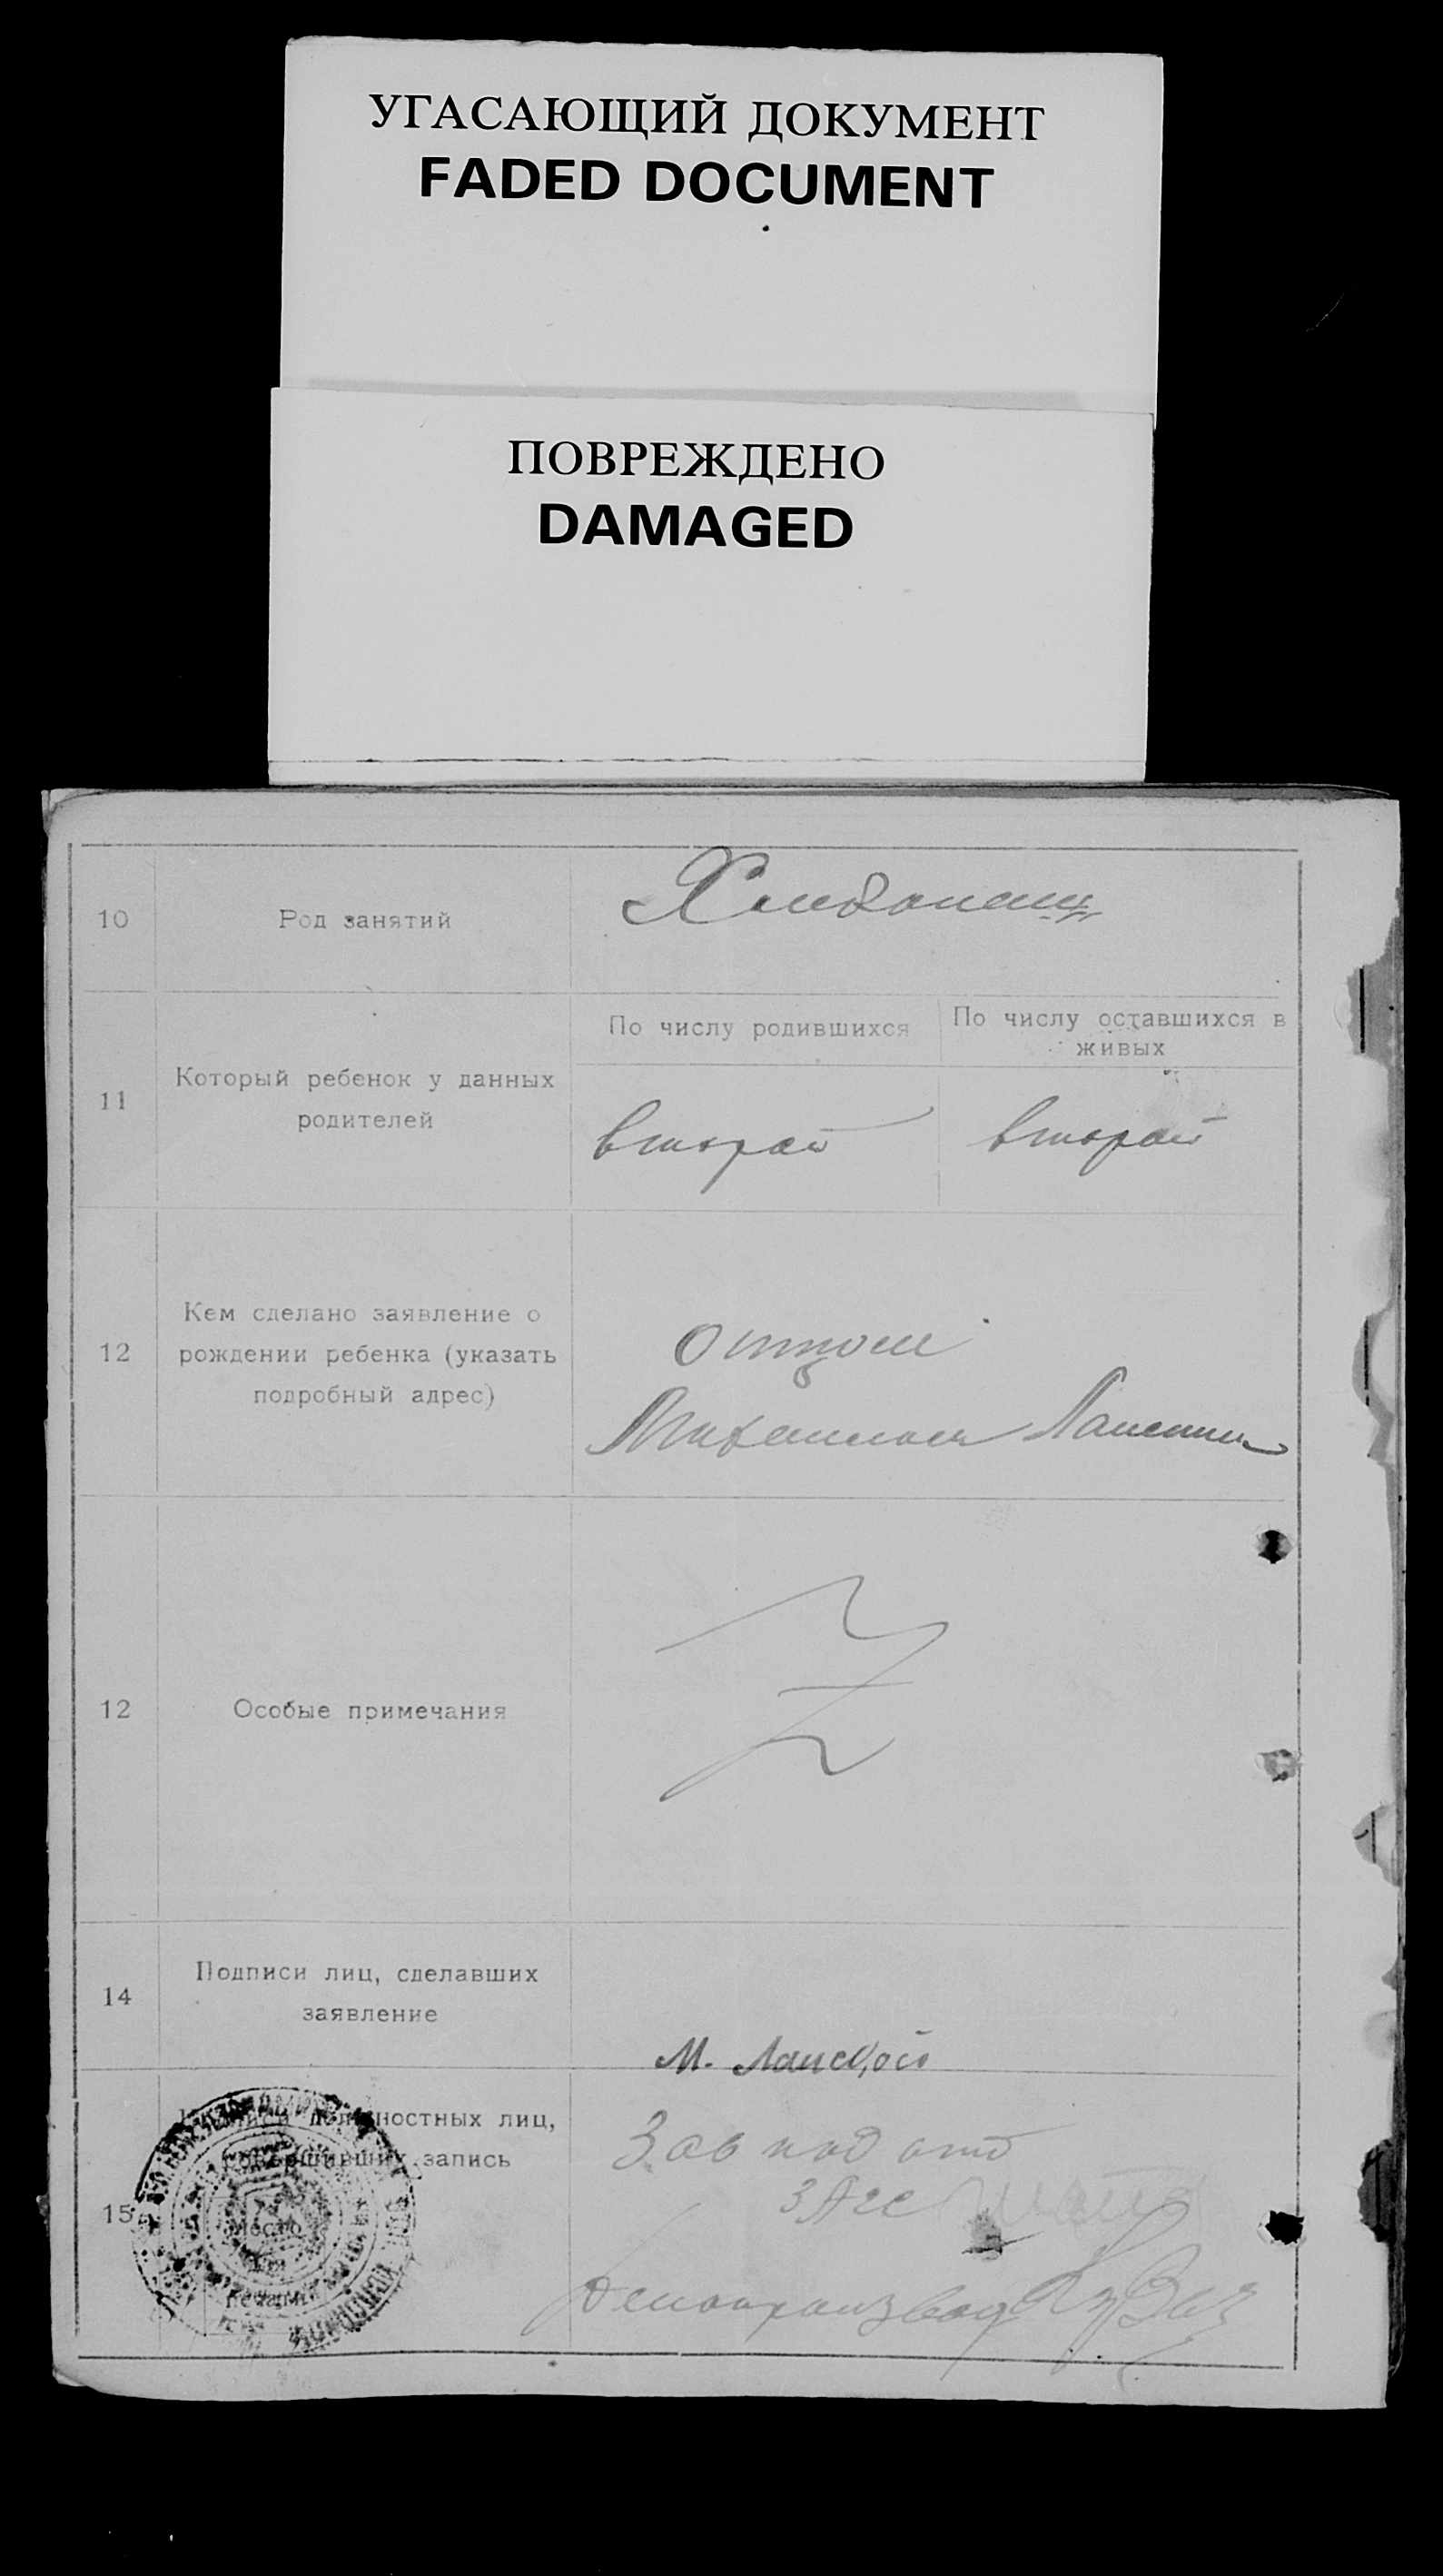 УГАСАЮЩИЙ ДОКУМЕНТ
FADED DOCUMENT
ПОВРЕЖДЕНО
DAMAGED
10
Род занятий
Хлебопашц
11
Который ребенок у данных
родителей
По числу родившихся
второй
По числу оставшихся в
живых
второй
12
Кем сделано заявление о
рождении ребенка (указать
подробный адрес)
отцом
Михаилом
12
Особые примечания
Z
14
Подписи лиц, сделавших
заявление
М. Ланской
15
Подписи должностных лиц,
совершивших запись
Место
для
печати
Зав под отд
ЗАГС
Делопроизвод